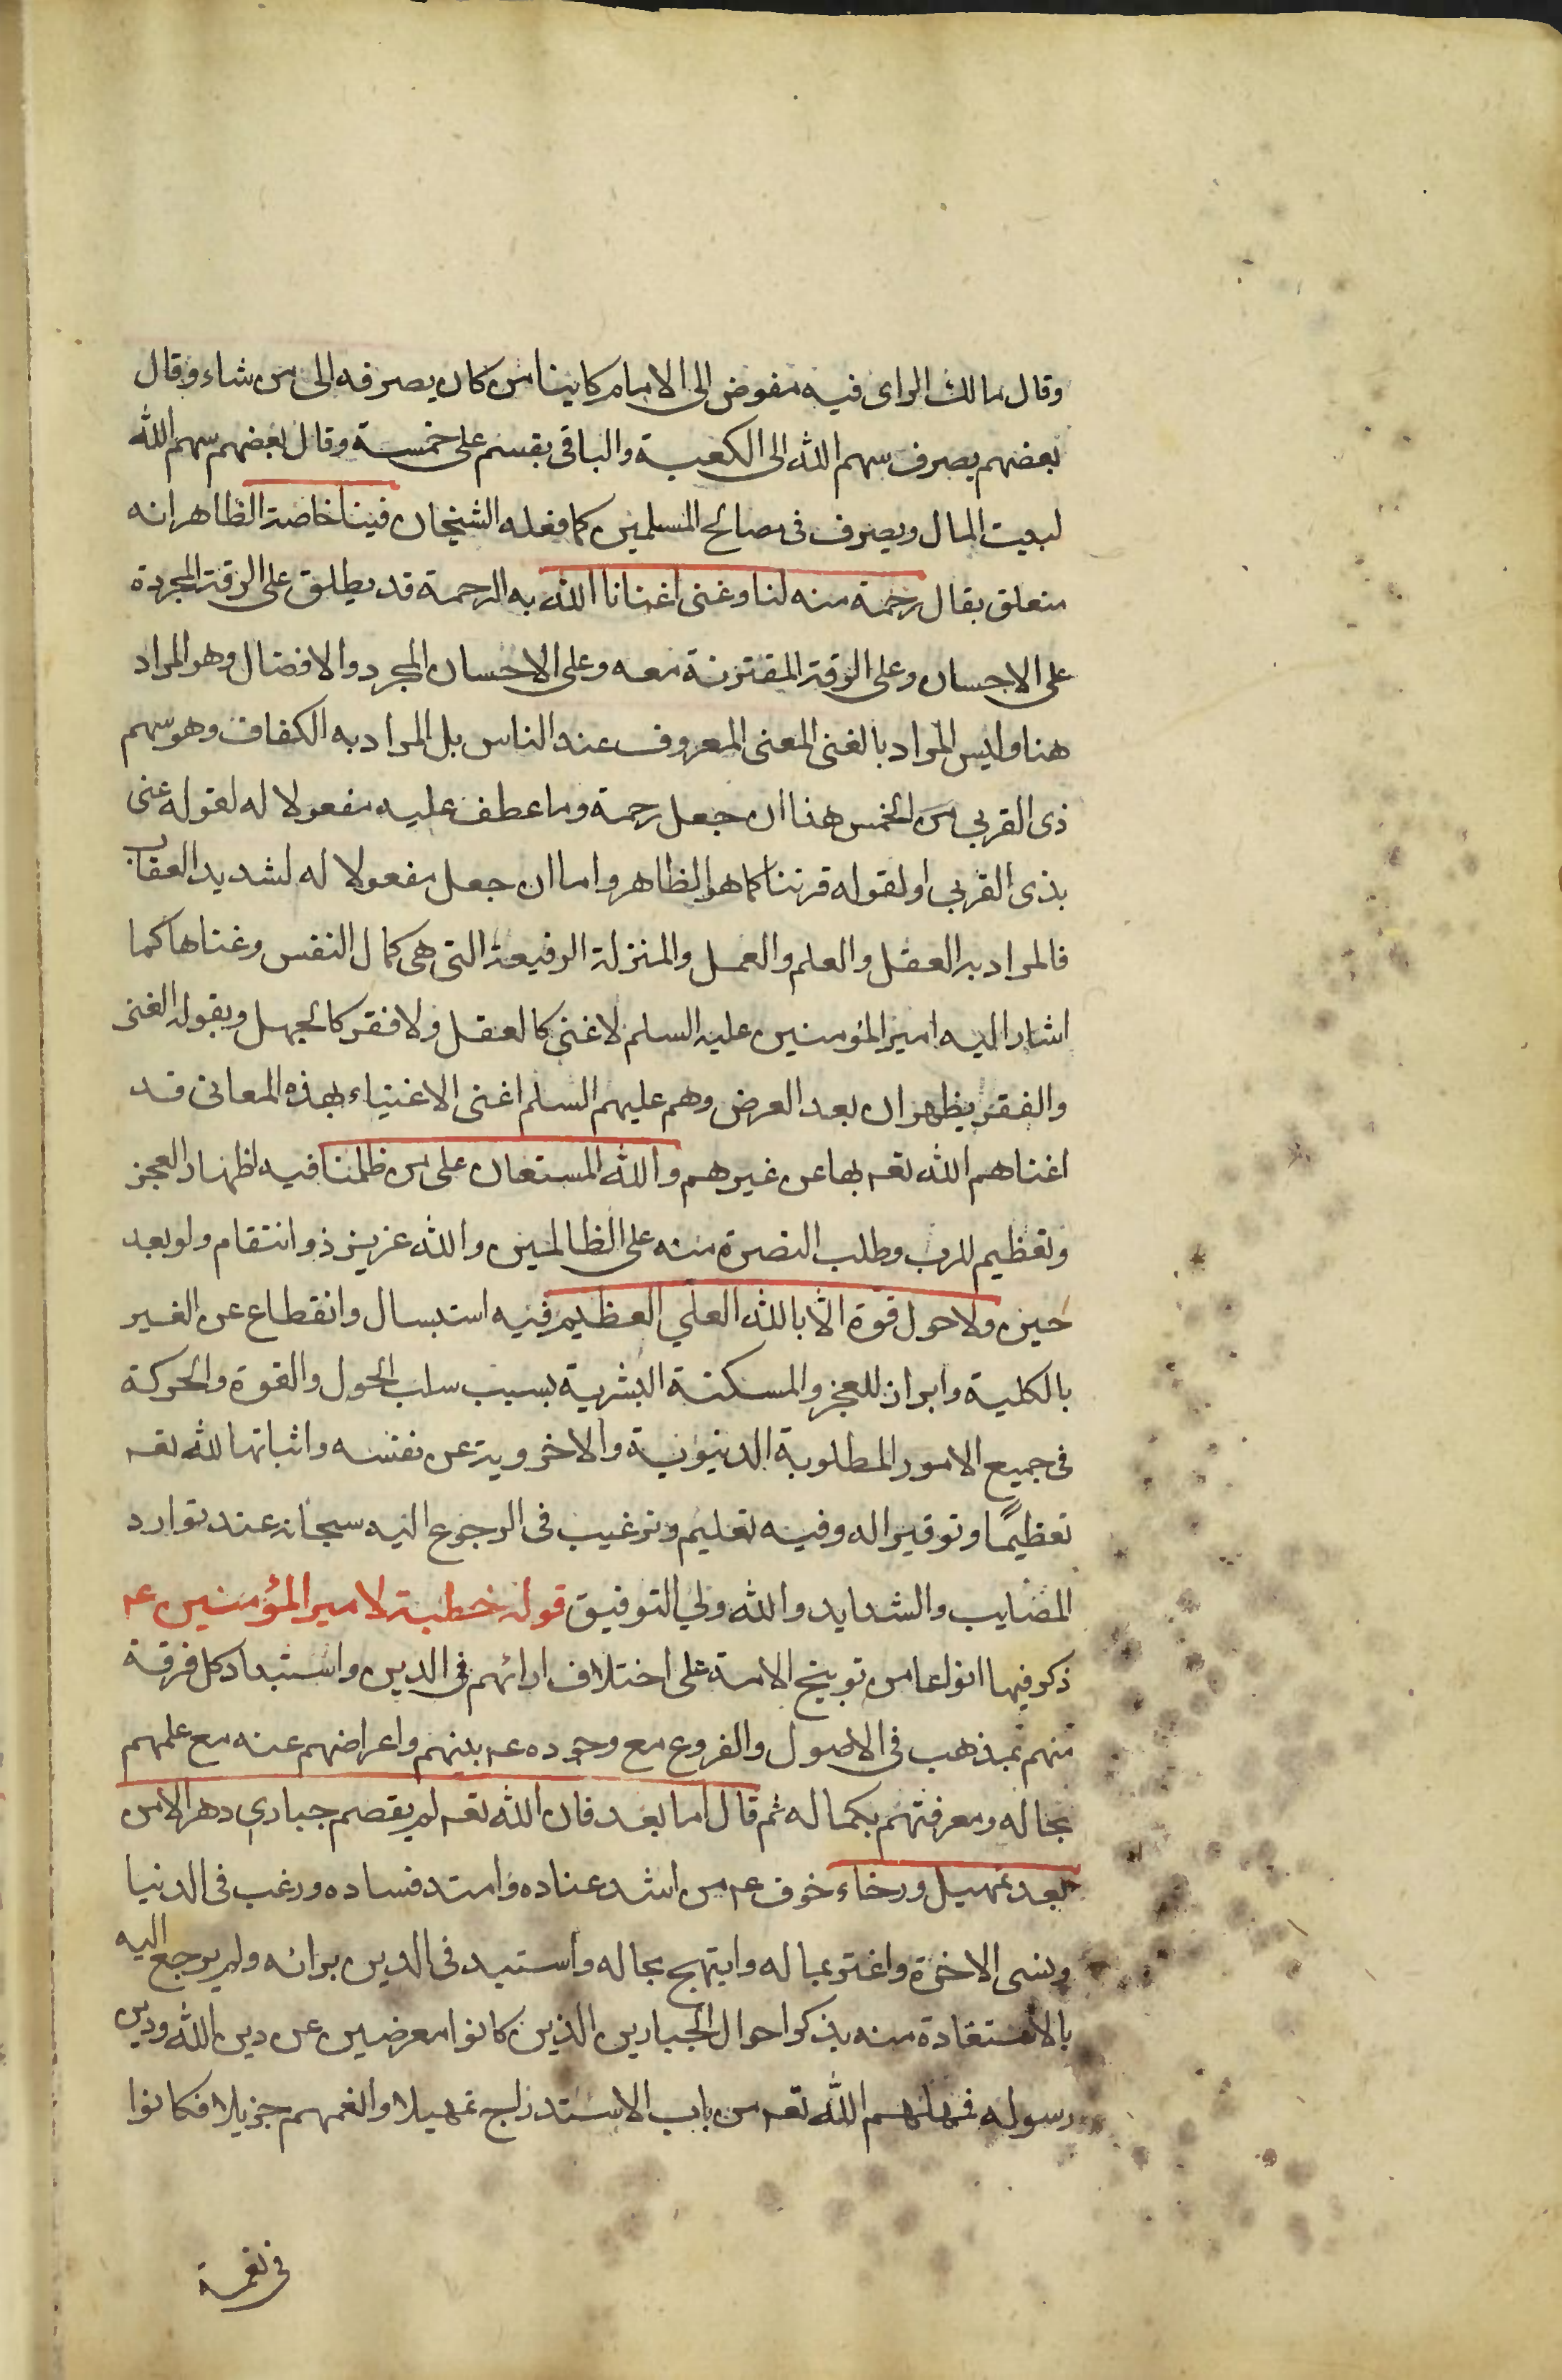 وقال مالك الراى فيه مفوض الى الامام كاينا من كان يصرفه الى من شاء وقال
بعضهم يصرف سهم الله الى الكعبة والباقى يقسم على خمسة وقال بعضهم سهم الله
لبيت المال ويصرف فى مصالح المسلمين كما فعله الشيخان فينا خاصة الظاهر انه
متعلق بقال رحمة منه لنا وغنى اغنانا الله به الرحمة قد يطلق على الرقة المجردة
على الاحسان وعلى الرقة المقترنة معه وعلى الاحسان المجرد والافضال وهو المراد
هنا وليس المراد بالغنى المعنى المعروف عند الناس بل المراد به الكفاف وهو سهم
ذى القربى من الخمس هذا ان جعل رحمة وما عطف عليه مفعولا له لقوله عنى
بذى القربى او لقوله قرننا كما هو الظاهر واما ان جعل مفعولا له لشديد العقاب
فالمراد به العقل والعلم والعمل والمنزلة الرفيعة التى هى كمال النفس وغناها كما
اشار اليه امير المؤمنين عليه السلم لا غنى كالعقل ولا فقر كالجهل وبقوله الغنى
والفقر يظهران بعد العرض وهم عليهم السلم اغنى الاغنياء بهذه المعانى قد
اغناهم الله تعـ بها عن غيرهم والله المستعان على من ظلمنا فيه اظهار العجز
وتعظيم للرب وطلب النصرة منه على الظالمين والله عزيز ذو انتقام ولو بعد
حين ولا حول قوة الا بالله العلي العظيم فيه استبسال وانقطاع عن الغير
بالكلية وابراز للعجز والمسكنة البشرية بسبب سلب الحول والقوة والحركة
فى جميع الامور المطلوبة الدنيوية والاخروية عن نفسه واثباتها لله تعـ
تعظيمًا وتوقيرا له وفيه تعليم وترغيب فى الرجوع اليه سبحانه عند توارد
المصايب والشدايد والله ولي التوفيق قوله خطبة لامير المؤمنين عـ
ذكر فيها انواعا من توبيخ الامة على اختلاف ارائهم فى الدين واستبداد كل فرقة
منهم بمذهب فى الاصول والفروع مع وجوده عـ بينهم واعراضهم عنه مع علمهم
بحاله ومعرفتهم بكماله ثم قال اما بعد فان الله تعـ لم يقصم جباري دهر الا من
بعد تمهيل ورخاء خوف عـ من اشد عناده وامتد فساده ورغب فى الدنيا
ونسى الاخرة واغتر بماله وابتهج بحاله واستبد فى الدين برانه ولم يرجع اليه
بالاستفادة منه بذكر احوال الجبارين الذين كانوا معرضين عن دين الله ودين
رسوله فمهلهم الله تعـ من باب الاستدراج تمهيلا وانعمهم جزيلا فكانوا
فى نعمة